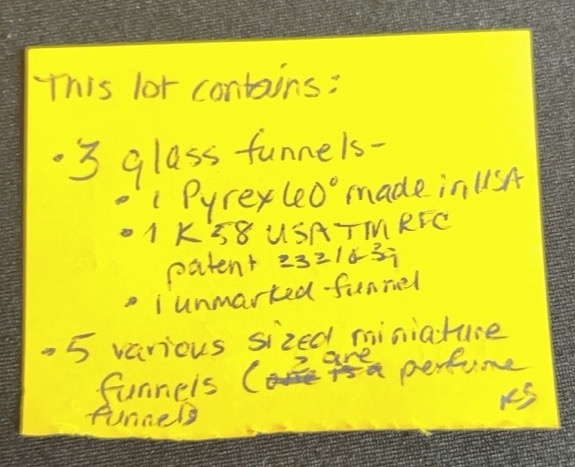 This lot contains:
• 3 glass funnels-
• 1 Pyrex 60° made in USA
• 1 K 58 USA TM REC
patent
• 1 unmarked funnel
• 5 various sized miniature
funnels (2 are perfume
funnels
KS